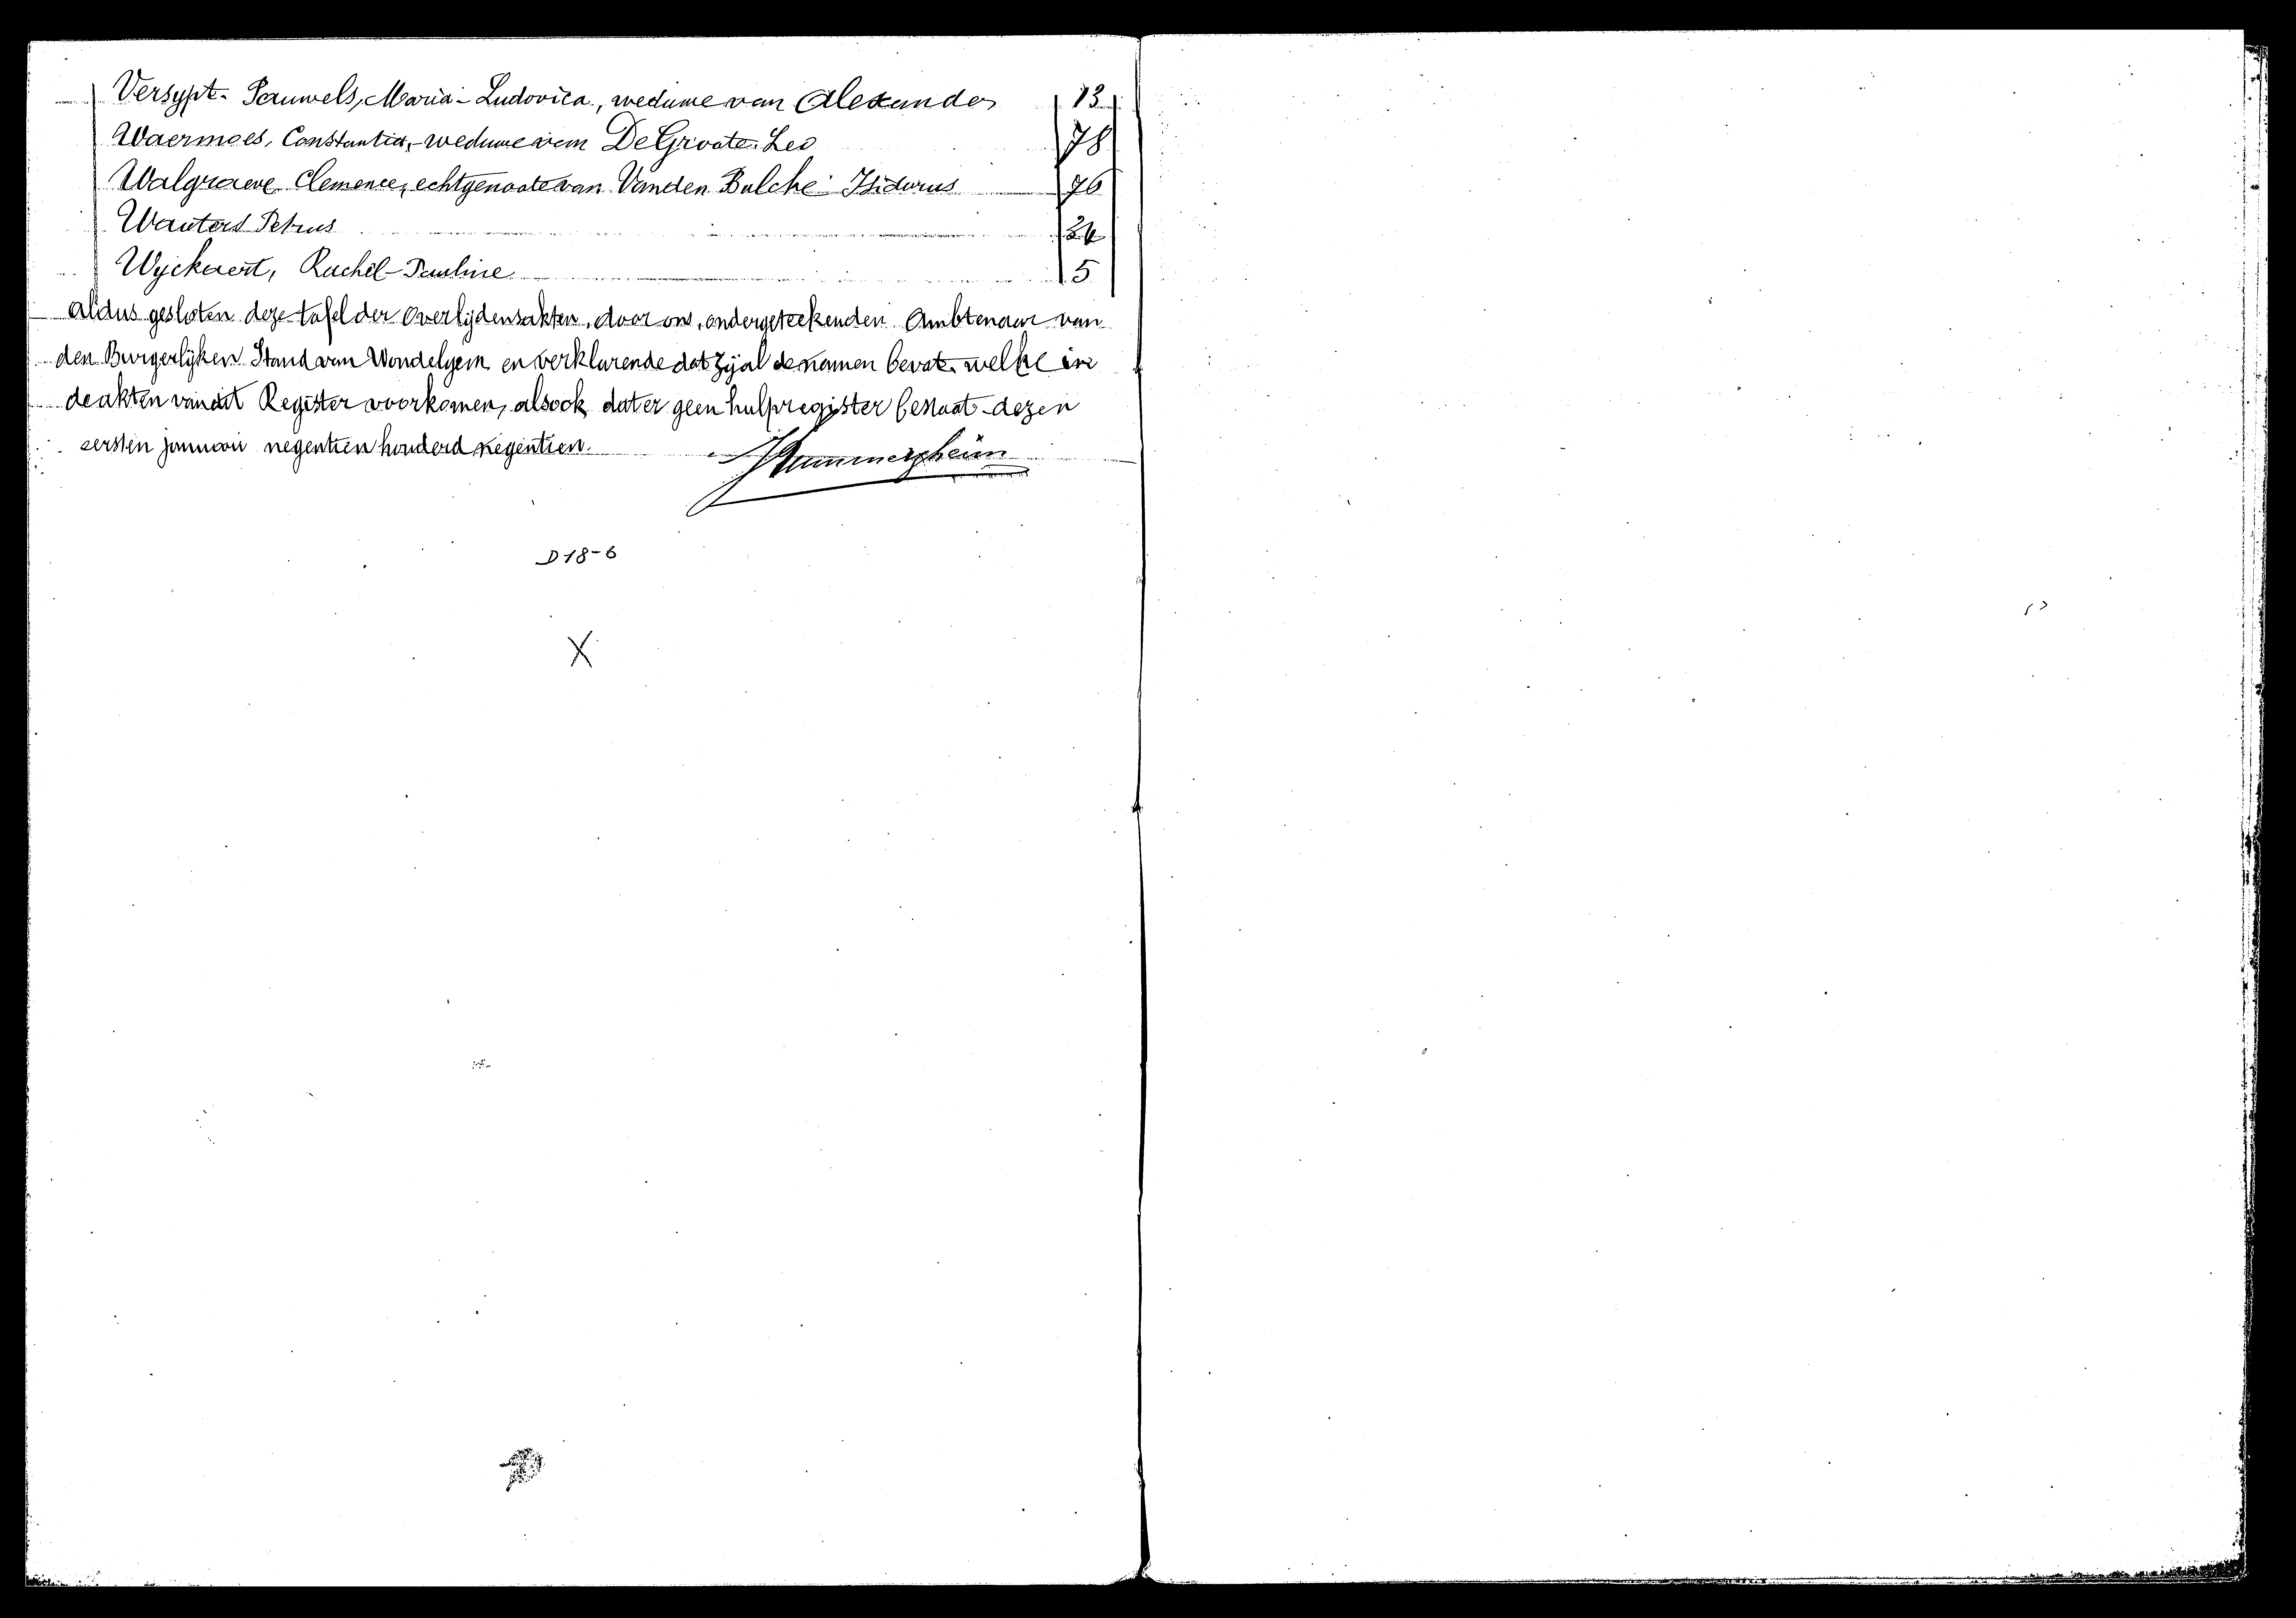 Versypt-Pauwels, Maria-Ludovica, weduwe van Alexander 13
Waermoes, Constantia, weduwe van De Groote Leo 78
Walgraeve Clemence, echtgenoote van Vanden Bulcke Isidorus 76
Wauters Petrus
Wyckaert, Rachel-Pauline 5
Aldus gesloten deze tafel der Overlijdensakten, door ons, ondergeteekenden Ambtenaar van
den Burgerlijken Stand van Wondelgem en verklarende dat zij al de namen bevat welke in
de akten van dit Register voorkomen, alsook dat er geen hulpregister bestaat dezen
eersten januari negentien honderd negentien.
D 18-6
X